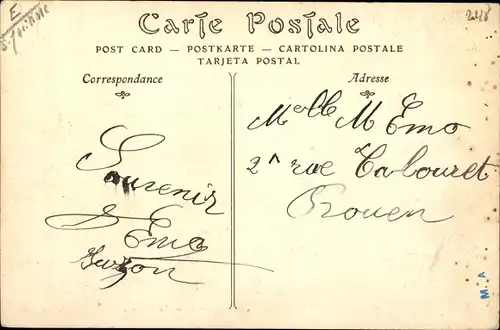 E
2418
Carte Postale
POST CARD — POSTKARTE — CARTOLINA POSTALE
TARJETA POSTAL
Correspondance
Adresse
Melle M Emo
2^ rue Tabouret
Rouen
Souvenir
Emo
M. A